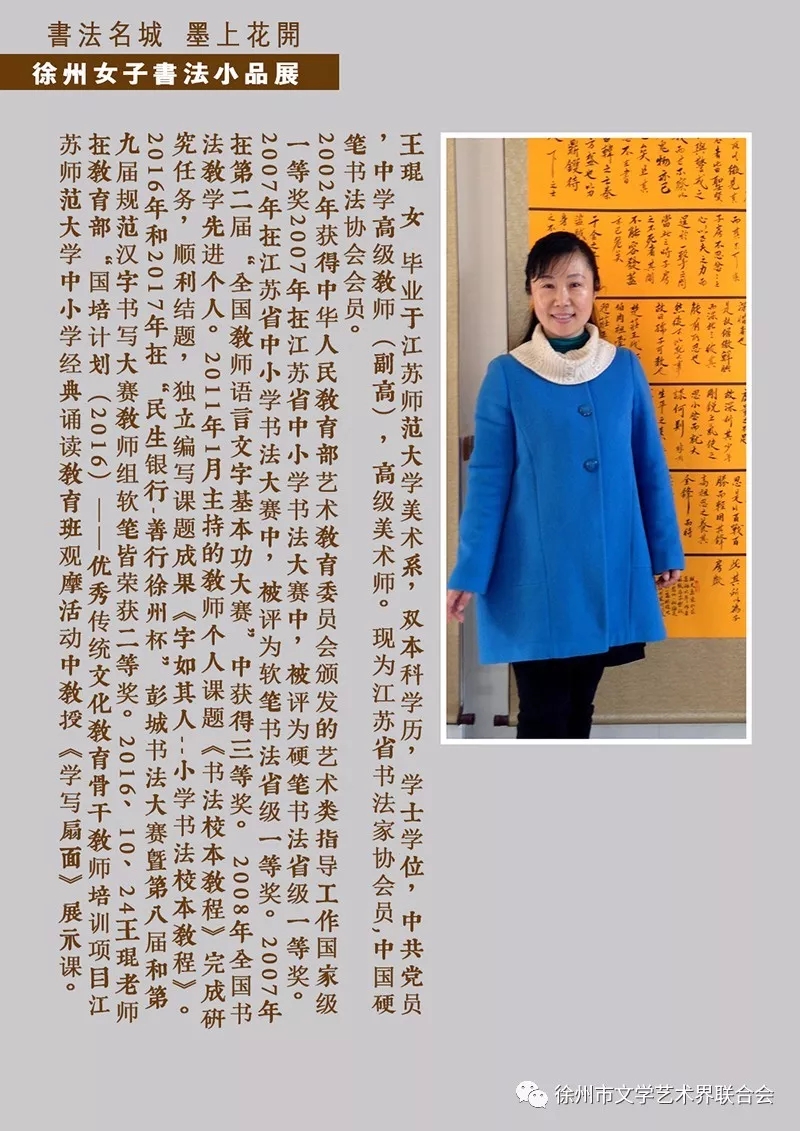 書法名城 墨上花開
徐州女子書法小品展
王琨 女 毕业于江苏师范大学美术系，双本科学历，学士学位，中共党员
，中学高级教师（副高），高级美术师。现为江苏省书法家协会员,中国硬
笔书法协会会员。
2002年获得中华人民教育部艺术教育委员会颁发的艺术类指导工作国家级
一等奖2007年在江苏省中小学书法大赛中，被评为硬笔书法省级一等奖。
2007年在江苏省中小学书法大赛中，被评为软笔书法省级一等奖。2007年
在第二届“全国教师语言文字基本功大赛”中获得三等奖。 2008年全国书
法教学先进个人。2011年1月主持的教师个人课题《书法校本教程》完成研
究任务，顺利结题，独立编写课题成果《字如其人--小学书法校本教程》。
2016年和2017年在“民生银行-善行徐州杯”彭城书法大赛暨第八届和第
九届规范汉字书写大赛教师组软笔皆荣获二等奖。2016、10、24王琨老师
在教育部“国培计划（2016）——优秀传统文化教育骨干教师培训项目江
苏师范大学中小学经典诵读教育班观摩活动中教授《学写扇面》展示课。
徐州市文学艺术界联合会